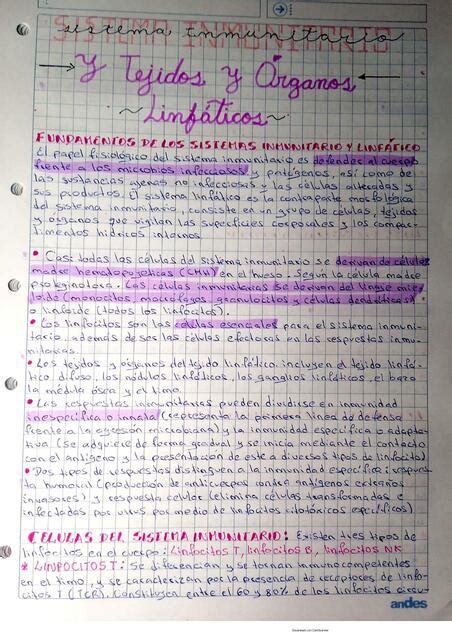 sistema inmunitario
SISTEMA INMUNITARIO
Y Tejidos y Órganos
~ Linfáticos ~
FUNDAMENTOS DE LOS SISTEMAS INMUNITARIO Y LINFÁTICO
El papel fisiológico del sistema inmunitario es defender al cuerpo
frente a los microbios infecciosos y patógenos, así como de
las sustancias ajenas no infecciosas y las células alteradas y
sus productos. El sistema linfático es la contraparte morfológica
del sistema inmunitario, consiste en un grupo de células, tejidos
y órganos que vigilan las superficies corporales y los compar-
timentos hídricos internos
• Casi todas las células del sistema inmunitario se derivan de células
madre hematopoyéticas (CMH) en el hueso. Según la célula madre
las células inmunitarias se derivan del linaje mie-
loide (monocitos macrófagos, granulocitos y células dendríticas)
o linfoide (todos los linfocitos).
• Los linfocitos son las células esenciales para el sistema inmuni-
tario, además de ser las células efectoras en las respuestas inmu-
nitarias.
• Los tejidos y órganos del tejido linfático incluyen el tejido linfá-
tico difuso, los nódulos linfáticos, los ganglios linfáticos, el bazo
la médula ósea y el timo.
• Las respuestas inmunitarias pueden dividirse en inmunidad
inespecífica o innata (representa la primera línea de defensa
frente a la agresión microbiana) y la inmunidad específica o adapta-
tiva (se adquiere de forma gradual y se inicia mediante el contacto
con el antígeno y la presentación de este a diversos tipos de linfocito)
• Dos tipos de respuestas distinguen a la inmunidad específica: respues-
ta humoral (producción de anticuerpos contra antígenos externos
invasores) y respuesta celular (elimina células transformadas e
infectadas por virus por medio de linfocitos citotóxicos específicos)
CELULAS DEL SISTEMA INMUNITARIO: Existen tres tipos de
linfocitos en el cuerpo: Linfocitos T, linfocitos B, linfocitos NK
* LINFOCITOS T: Se diferencian y se tornan inmunocompetentes
en el timo, y se caracterizan por la presencia de receptores de linfo-
citos T (TCR). Constituyen entre el 60 y 80% de los linfocitos circu-
andes